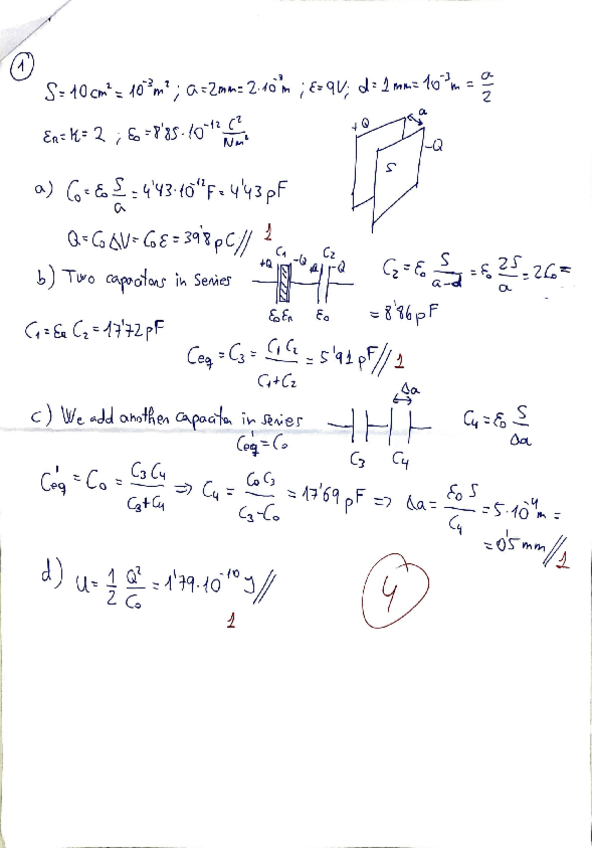 1
S = 10 cm² = 10⁻³ m² ; a = 2mm = 2·10⁻³ m ; ε = 9V ; d = 1 mm = 10⁻³ m = a/2
εr = K = 2 ; ε₀ = 8'85·10⁻¹² C²/Nm²
+Q a -Q
S
a) C₀ = ε₀ S/a = 4'43·10⁻¹² F = 4'43 pF
Q = C₀ ΔV = C₀ ε = 39'8 pC // 1
b) Two capacitors in series
C₁ C₂
+Q -Q -Q
ε₀εr ε₀
C₂ = ε₀ S/(a-d) = ε₀ 2S/a = 2C₀ =
= 8'86 pF
C₁ = εr C₂ = 17'72 pF
Ceq = C₃ = C₁C₂/(C₁+C₂) = 5'91 pF // 1
c) We add another capacitor in series
C'eq = C₀
Δa
C₃ C₄
C₄ = ε₀ S/Δa
C'eq = C₀ = C₃C₄/(C₃+C₄) ⇒ C₄ = C₀C₃/(C₃-C₀) = 17'69 pF ⇒ Δa = ε₀S/C₄ = 5·10⁻⁴ m =
= 0'5 mm // 1
d) U = 1/2 Q²/C₀ = 1'79·10⁻¹⁰ J //
1
4